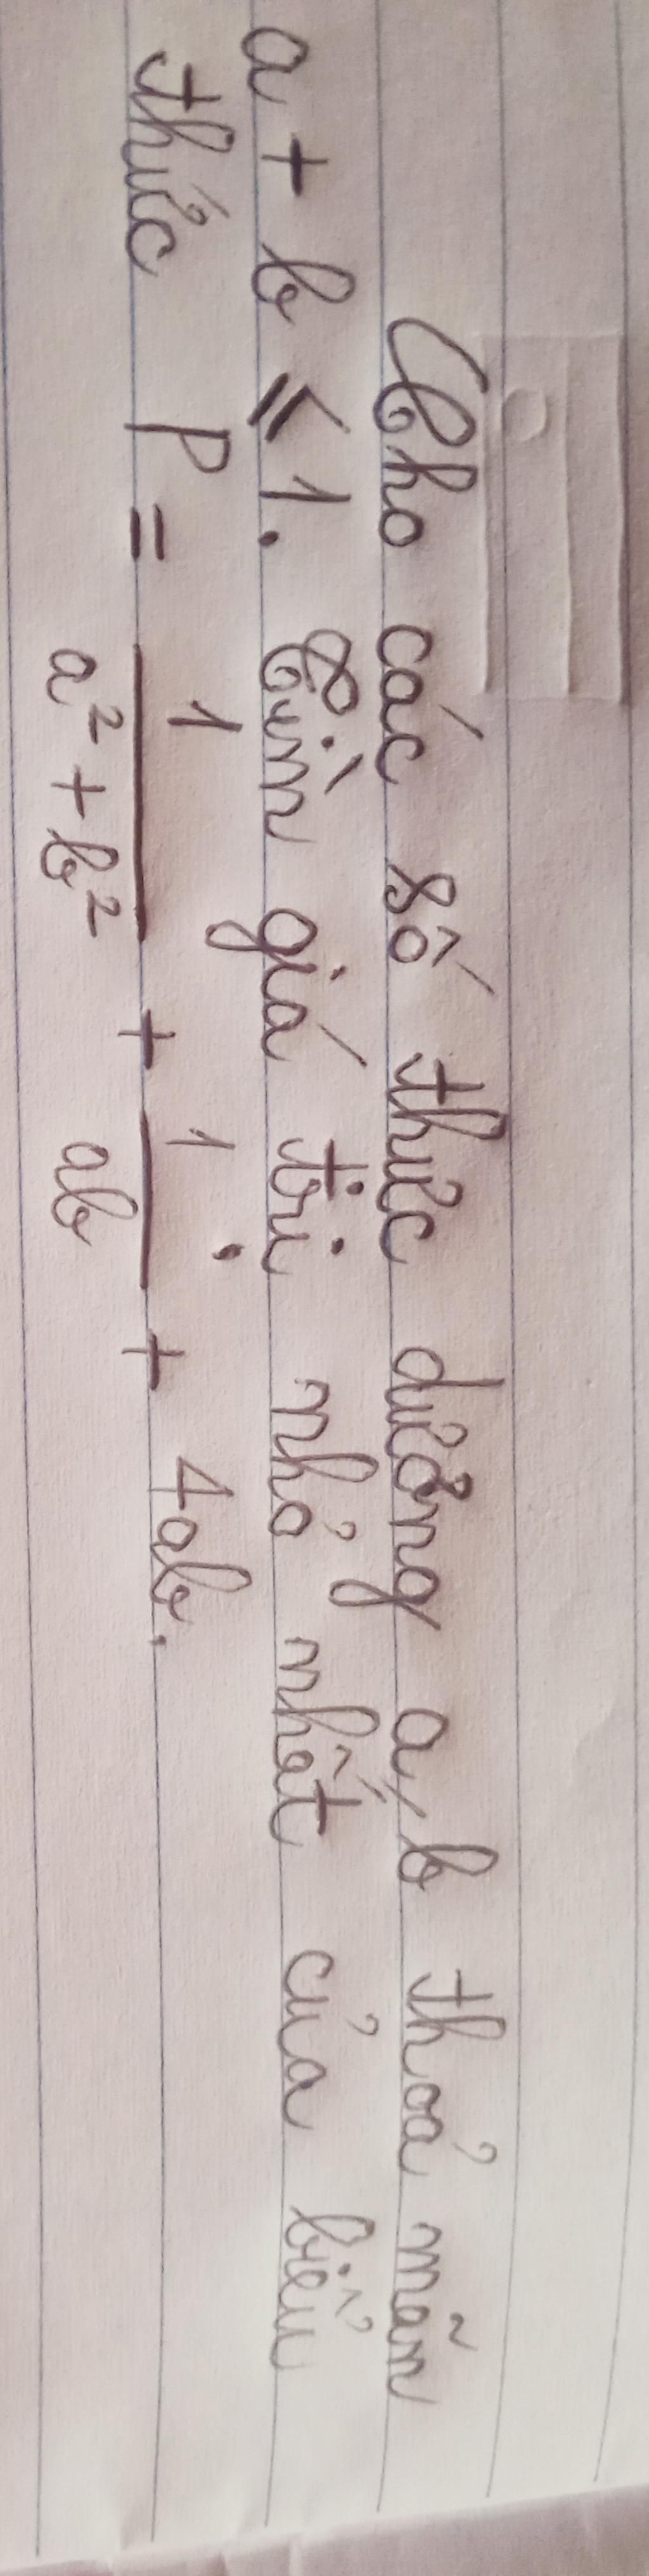 Cho các số thực dương a, b thoả mãn
a + b ≤ 1. Tìm giá trị nhỏ nhất của biểu
thức P = 1/(a² + b²) + 1/ab + 4ab.